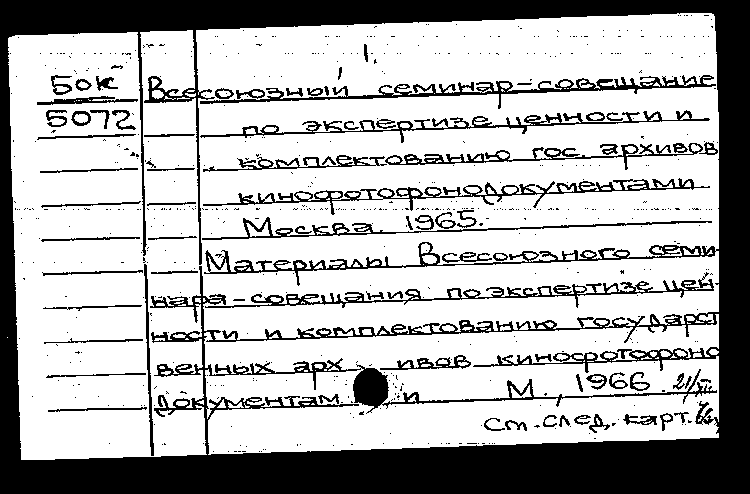 1.
50к Всесоюзный семинар-совещание
5072 по экспертизе ценности и
комплектованию гос. архивов
кинофотофонодокументами
Москва. 1965.
Материалы Всесоюзного семи-
нара-совещания по экспертизе цен-
ности и комплектованию государст
венных арх ивов кинофотофоно
документам и М., 1966. 21/XII
См. след. карт.